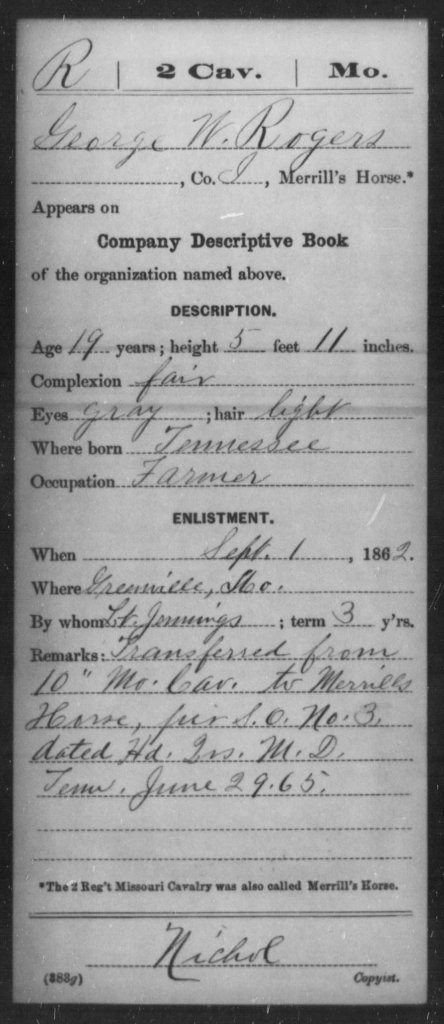 R | 2 Cav. | Mo.
George W. Rogers
, Co. I, Merrill's Horse.*
Appears on
Company Descriptive Book
of the organization named above.
DESCRIPTION.
Age 19 years; height 5 feet 11 inches.
Complexion fair
Eyes gray ; hair light
Where born Tennessee
Occupation Farmer
ENLISTMENT.
When Sept. 1, 1862.
Where Greenville, Mo.
By whom Lt. Jennings ; term 3 y'rs.
Remarks: Transferred from
10" Mo. Cav. to Merrills
Horse, per S. O. No. 3.
dated Hd. Qrs. M. D.
Tenn. June 29. 65.
*The 2 Reg't Missouri Cavalry was also called Merrill's Horse.
Nichol
(383g) Copyist.